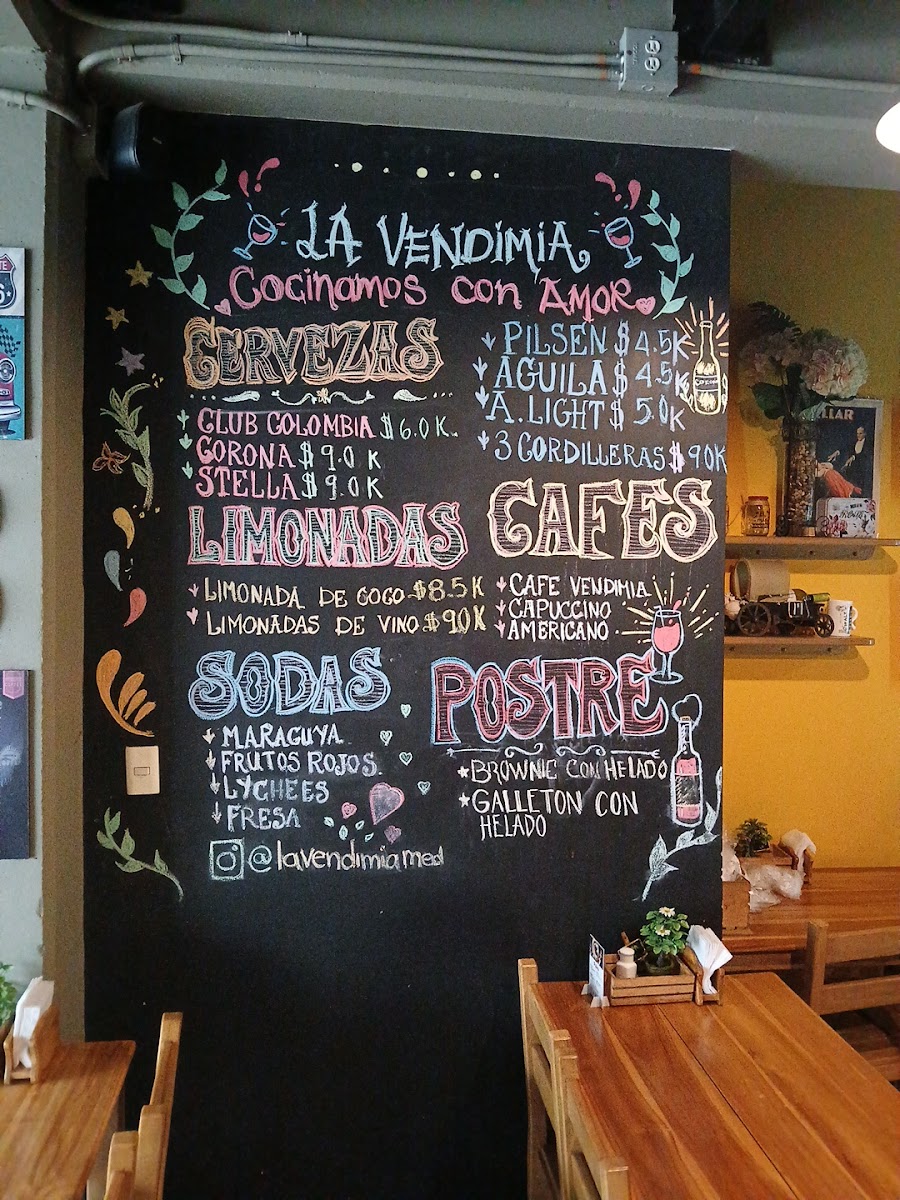 LA VENDIMIA
Cocinamos con AMOR
CERVEZAS
CLUB COLOMBIA $6.0K
CORONA $9.0 K
STELLA $9.0K
PILSEN $4.5K
AGUILA $4.5K
A. LIGHT $5.0K
3 CORDILLERAS $90K
LIMONADAS
LIMONADA DE COCO $8.5 K
LIMONADAS DE VINO $90K
CAFES
CAFE VENDIMIA
CAPUCCINO
AMERICANO
SODAS
MARAGUYA
FRUTOS ROJOS
LYCHEES
FRESA
POSTRE
BROWNIE CON HELADO
GALLETON CON
HELADO
@lavendimiamed